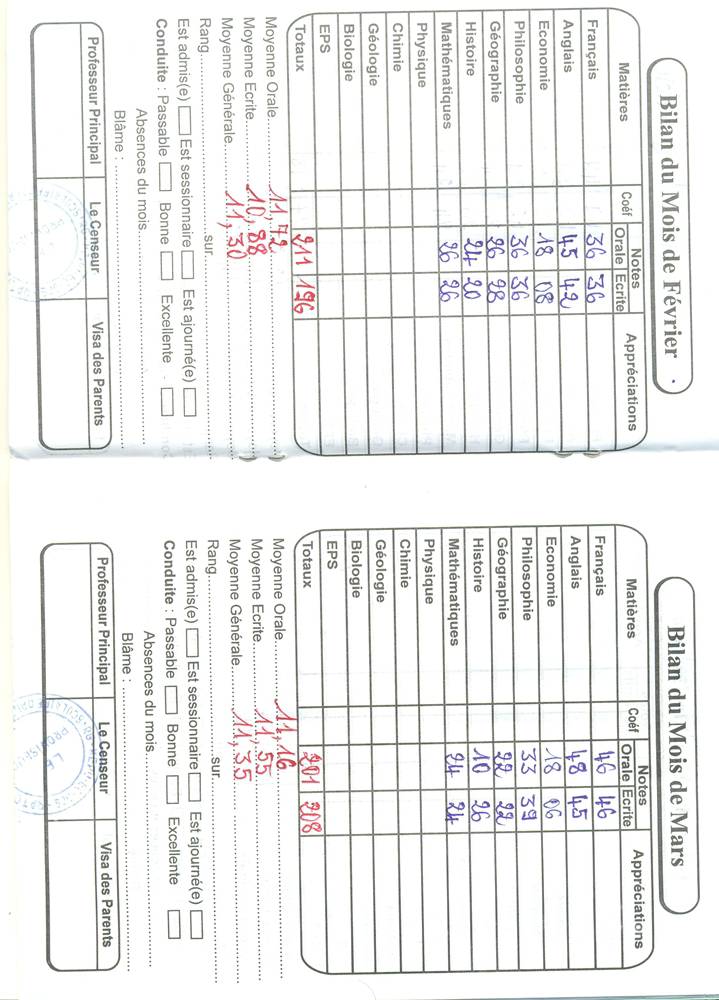 Bilan du Mois de Février
Matières Coéf Notes Appréciations
Orale Ecrite
Français 36 36
Anglais 45 42
Economie 18 08
Philosophie 36 36
Géographie 26 28
Histoire 24 20
Mathématiques 26 26
Physique
Chimie
Géologie
Biologie
EPS
Totaux 211 196
Moyenne Orale 11,72
Moyenne Ecrite 10,88
Moyenne Générale 11,30
Rang sur
Est admis(e) Est sessionnaire Est ajourné(e)
Conduite : Passable Bonne Excellente
Absences du mois
Blâme :
Professeur Principal Le Censeur Visa des Parents
Bilan du Mois de Mars
Matières Coéf Notes Appréciations
Orale Ecrite
Français 46 46
Anglais 48 45
Economie 18 06
Philosophie 33 39
Géographie 22 22
Histoire 10 26
Mathématiques 24 24
Physique
Chimie
Géologie
Biologie
EPS
Totaux 201 208
Moyenne Orale 11,16
Moyenne Ecrite 11,55
Moyenne Générale 11,35
Rang sur
Est admis(e) Est sessionnaire Est ajourné(e)
Conduite : Passable Bonne Excellente
Absences du mois
Blâme :
Professeur Principal Le Censeur Visa des Parents